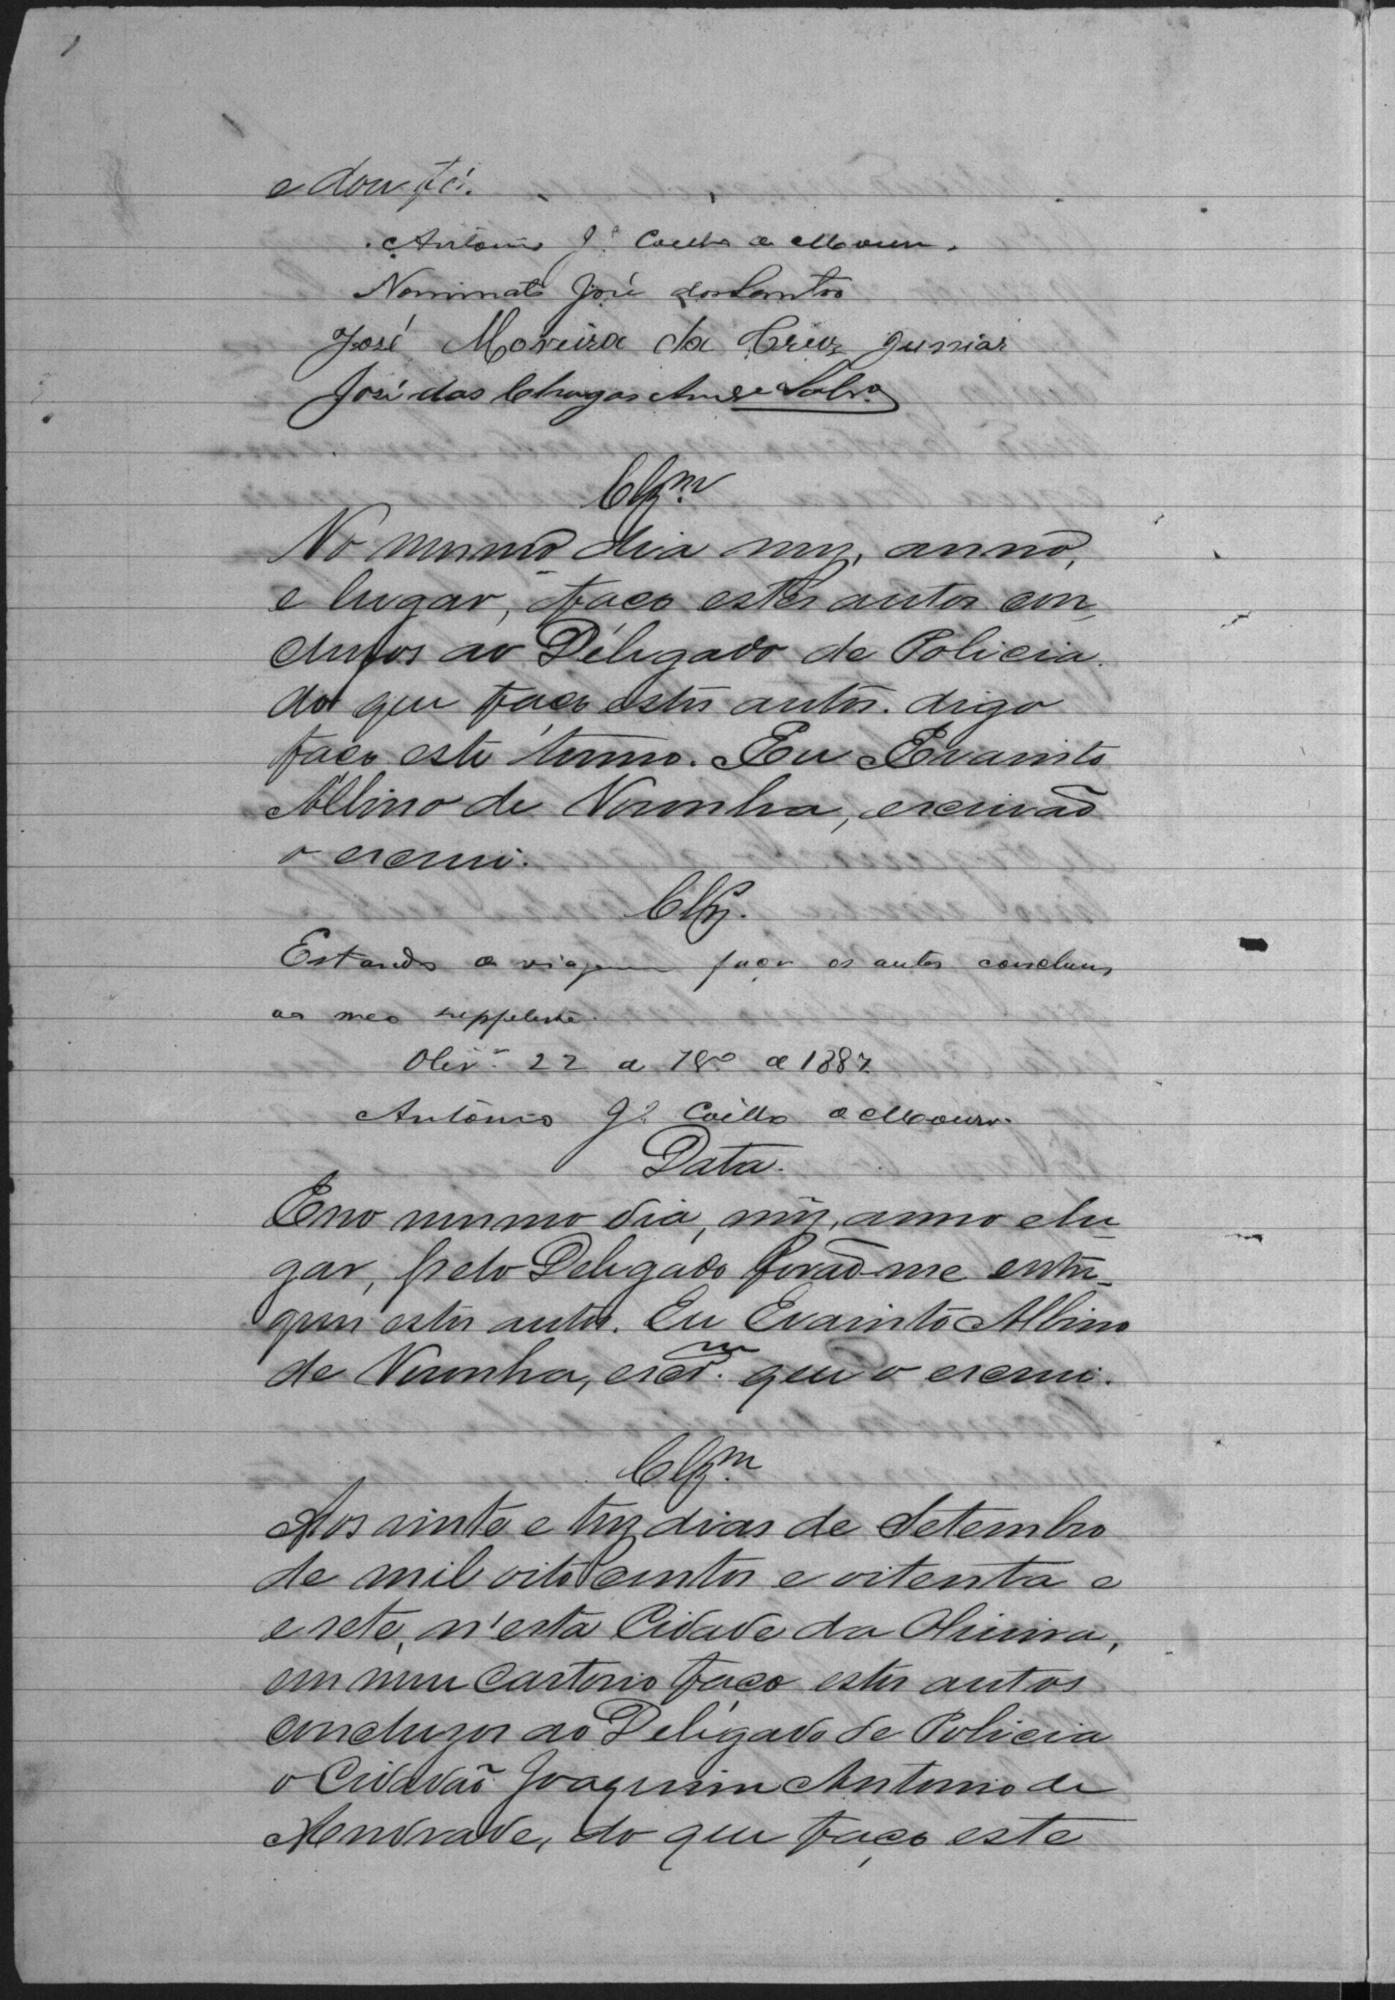 e dou fé.
Antonio J.e Coelho de Moura.
Nominato José dos Santos
José Moreira da Cruz Junior
José das Chagas Andr.e Sobr.o
Clz.m
No mesmo dia, mez, anno,
e lugar, faço estes autos con-
cluzos ao Delegado de Policia.
do que faço estes autos. digo
faço este termo. Eu Evaristo
Albino de Noronha, escrivão
o escrevi.
Clz.
Estando de viagem faço os autos concluzos
ao meo supplente.
Olivr.a 22 de 7bro de 1887
Antonio J.e Coelho de Moura.
Data.
E no mesmo dia, mez, anno e lu-
gar, pelo Delegado forão-me entre-
gues estes autos. Eu Evaristo Albino
de Noronha, escr.m que o escrevi.
Clz.m
Aos vinte e trez dias de Setembro
de mil oito centos e oitenta e
e sete, n'esta Cidade da Oliveira,
em meu cartorio faço estes autos
concluzos ao Delegado de Policia
o Cidadão Joaquim Antonio de
Andrade, do que faço este